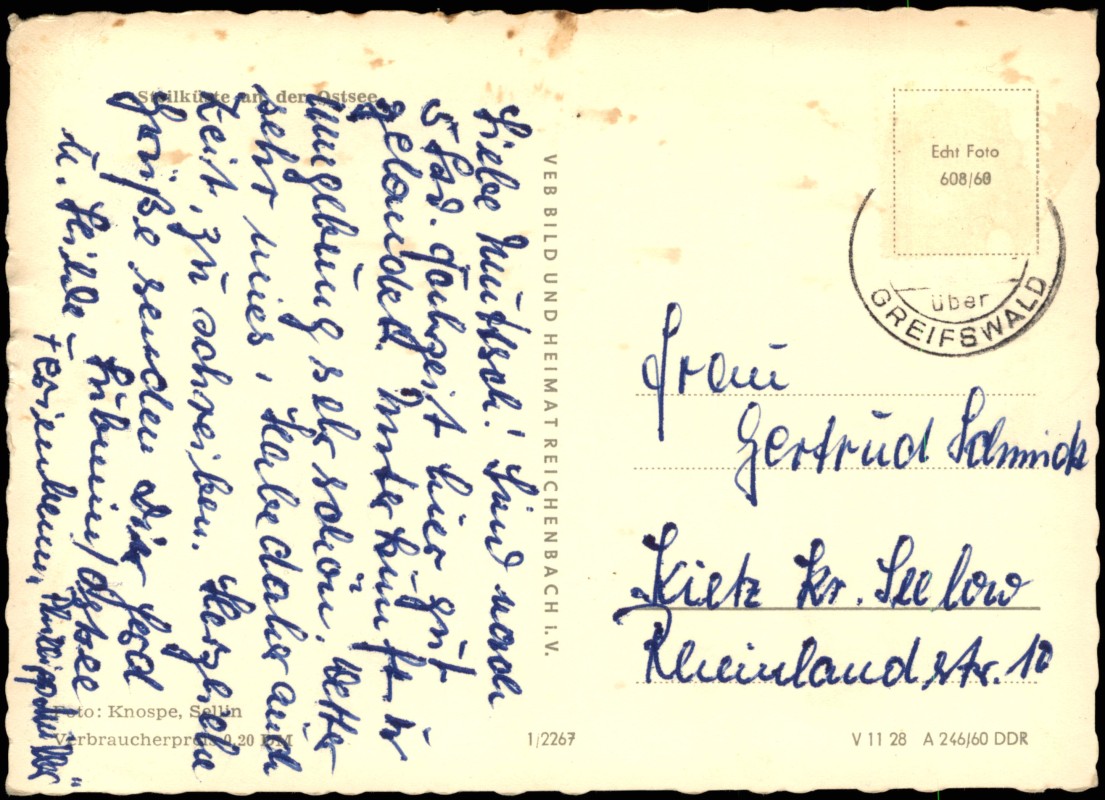 Steilküste an der Ostsee
Liebe Muttsch! Sind nach
5 Std. Fahrzeit hier gut
gelandet. Unterkunft u.
Umgebung sehr schön. Wetter
sehr mies, habe daher auch
Zeit, zu schreiben. Herzliche
Grüße senden Dir Gerd
u. Hilde
Lubmin/Ostsee
Ferienheim
VEB BILD UND HEIMAT REICHENBACH i. V.
Echt Foto
608/60
über
GREIFSWALD
Frau
Gertrud Schmidt
Kietz Kr. Seelow
Rheinlandstr. 10
Foto: Knospe, Sellin
Verbraucherpreis 0,20 DM
1/2267
V 11 28 A 246/60 DDR